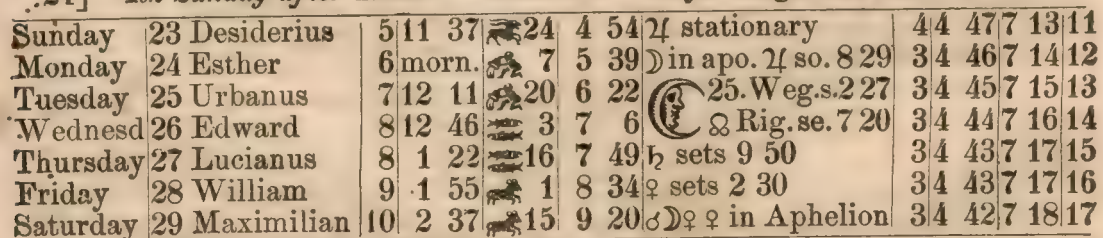 Sunday 23 Desiderius 5 11 37 24 4 54 ♃ stationary 4 4 47 7 13 11
Monday 24 Esther 6 morn. 7 5 39 ☽ in apo. ♃ so. 8 29 3 4 46 7 14 12
Tuesday 25 Urbanus 7 12 11 20 6 22 25. Weg. s. 2 27 3 4 45 7 15 13
Wednesd 26 Edward 8 12 46 3 7 6 ☊ Rig. se. 7 20 3 4 44 7 16 14
Thursday 27 Lucianus 8 1 22 16 7 49 ♄ sets 9 50 3 4 43 7 17 15
Friday 28 William 9 1 55 1 8 34 ♀ sets 2 30 3 4 43 7 17 16
Saturday 29 Maximilian 10 2 37 15 9 20 ☌☽♀ ♀ in Aphelion 3 4 42 7 18 17